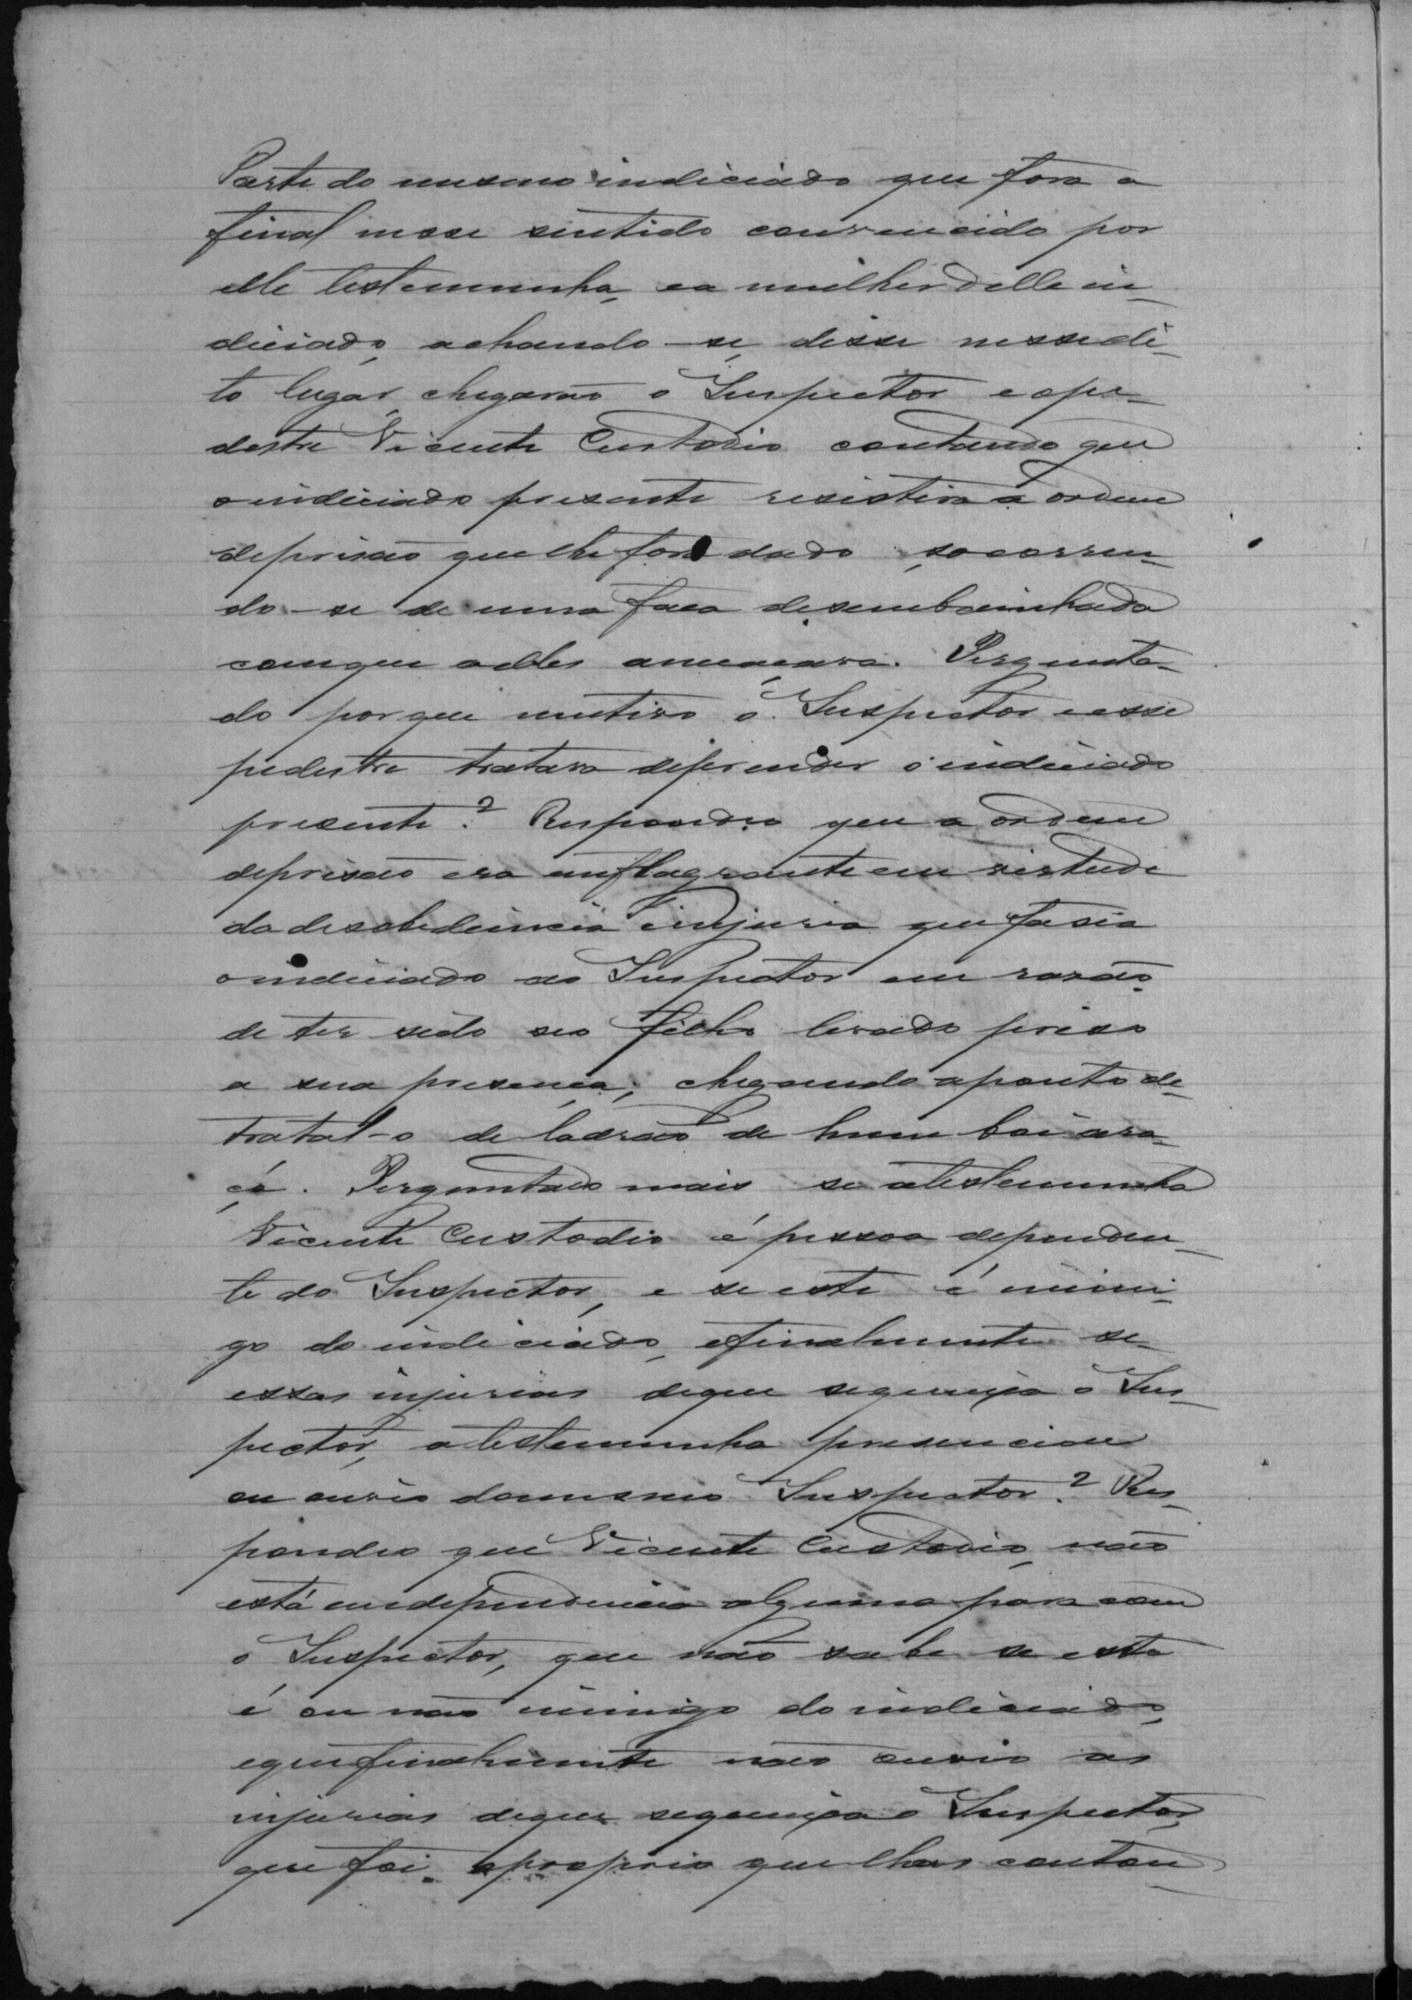 Parte do mesmo indiciado que fora a
final nesse sentido convencido por
elle testemunha, e a mulher delle in-
diciado, achando-se, disse nesse di-
to lugar, chegarão o Inspector e o pe-
destre Vicente Custodio contando que
o indiciado presente resistira a ordem
de prisão que lhe fora dado socorren-
do-se de uma faca desembainhada
com que a elles ameaçara. Pergunta-
do por que mutivo o Inspector e esse
pedestre tratara de prender o indiciado
presente? Respondeo que a ordem
de prisão era em flagrante em virtude
da desobediencia e injuria que fasia
o indiciado ao Inspector em rasão
de ter sido seo filho levado preso
a sua presença, chegando a ponto de
tratal-o de ladrão de hum boi ara-
çá. Perguntado mais se a testemunha
Vicente Custodio é pessoa dependen-
te do Inspector, e se este é inimi-
go do indiciado, e finalmente se
essas injurias de que se queixa o Ins-
pector, a testemunha presenciou
ou ouvio do mesmo Inspector? Res-
pondeo que Vicente Custodio, não
está em dependencia alguma para com
o Inspector, que não sabe se esta
é ou não inimigo do indiciado,
e que finalmente não ouvio as
injurias de que se queixa o Inspector,
que foi o proprio que lhas contou